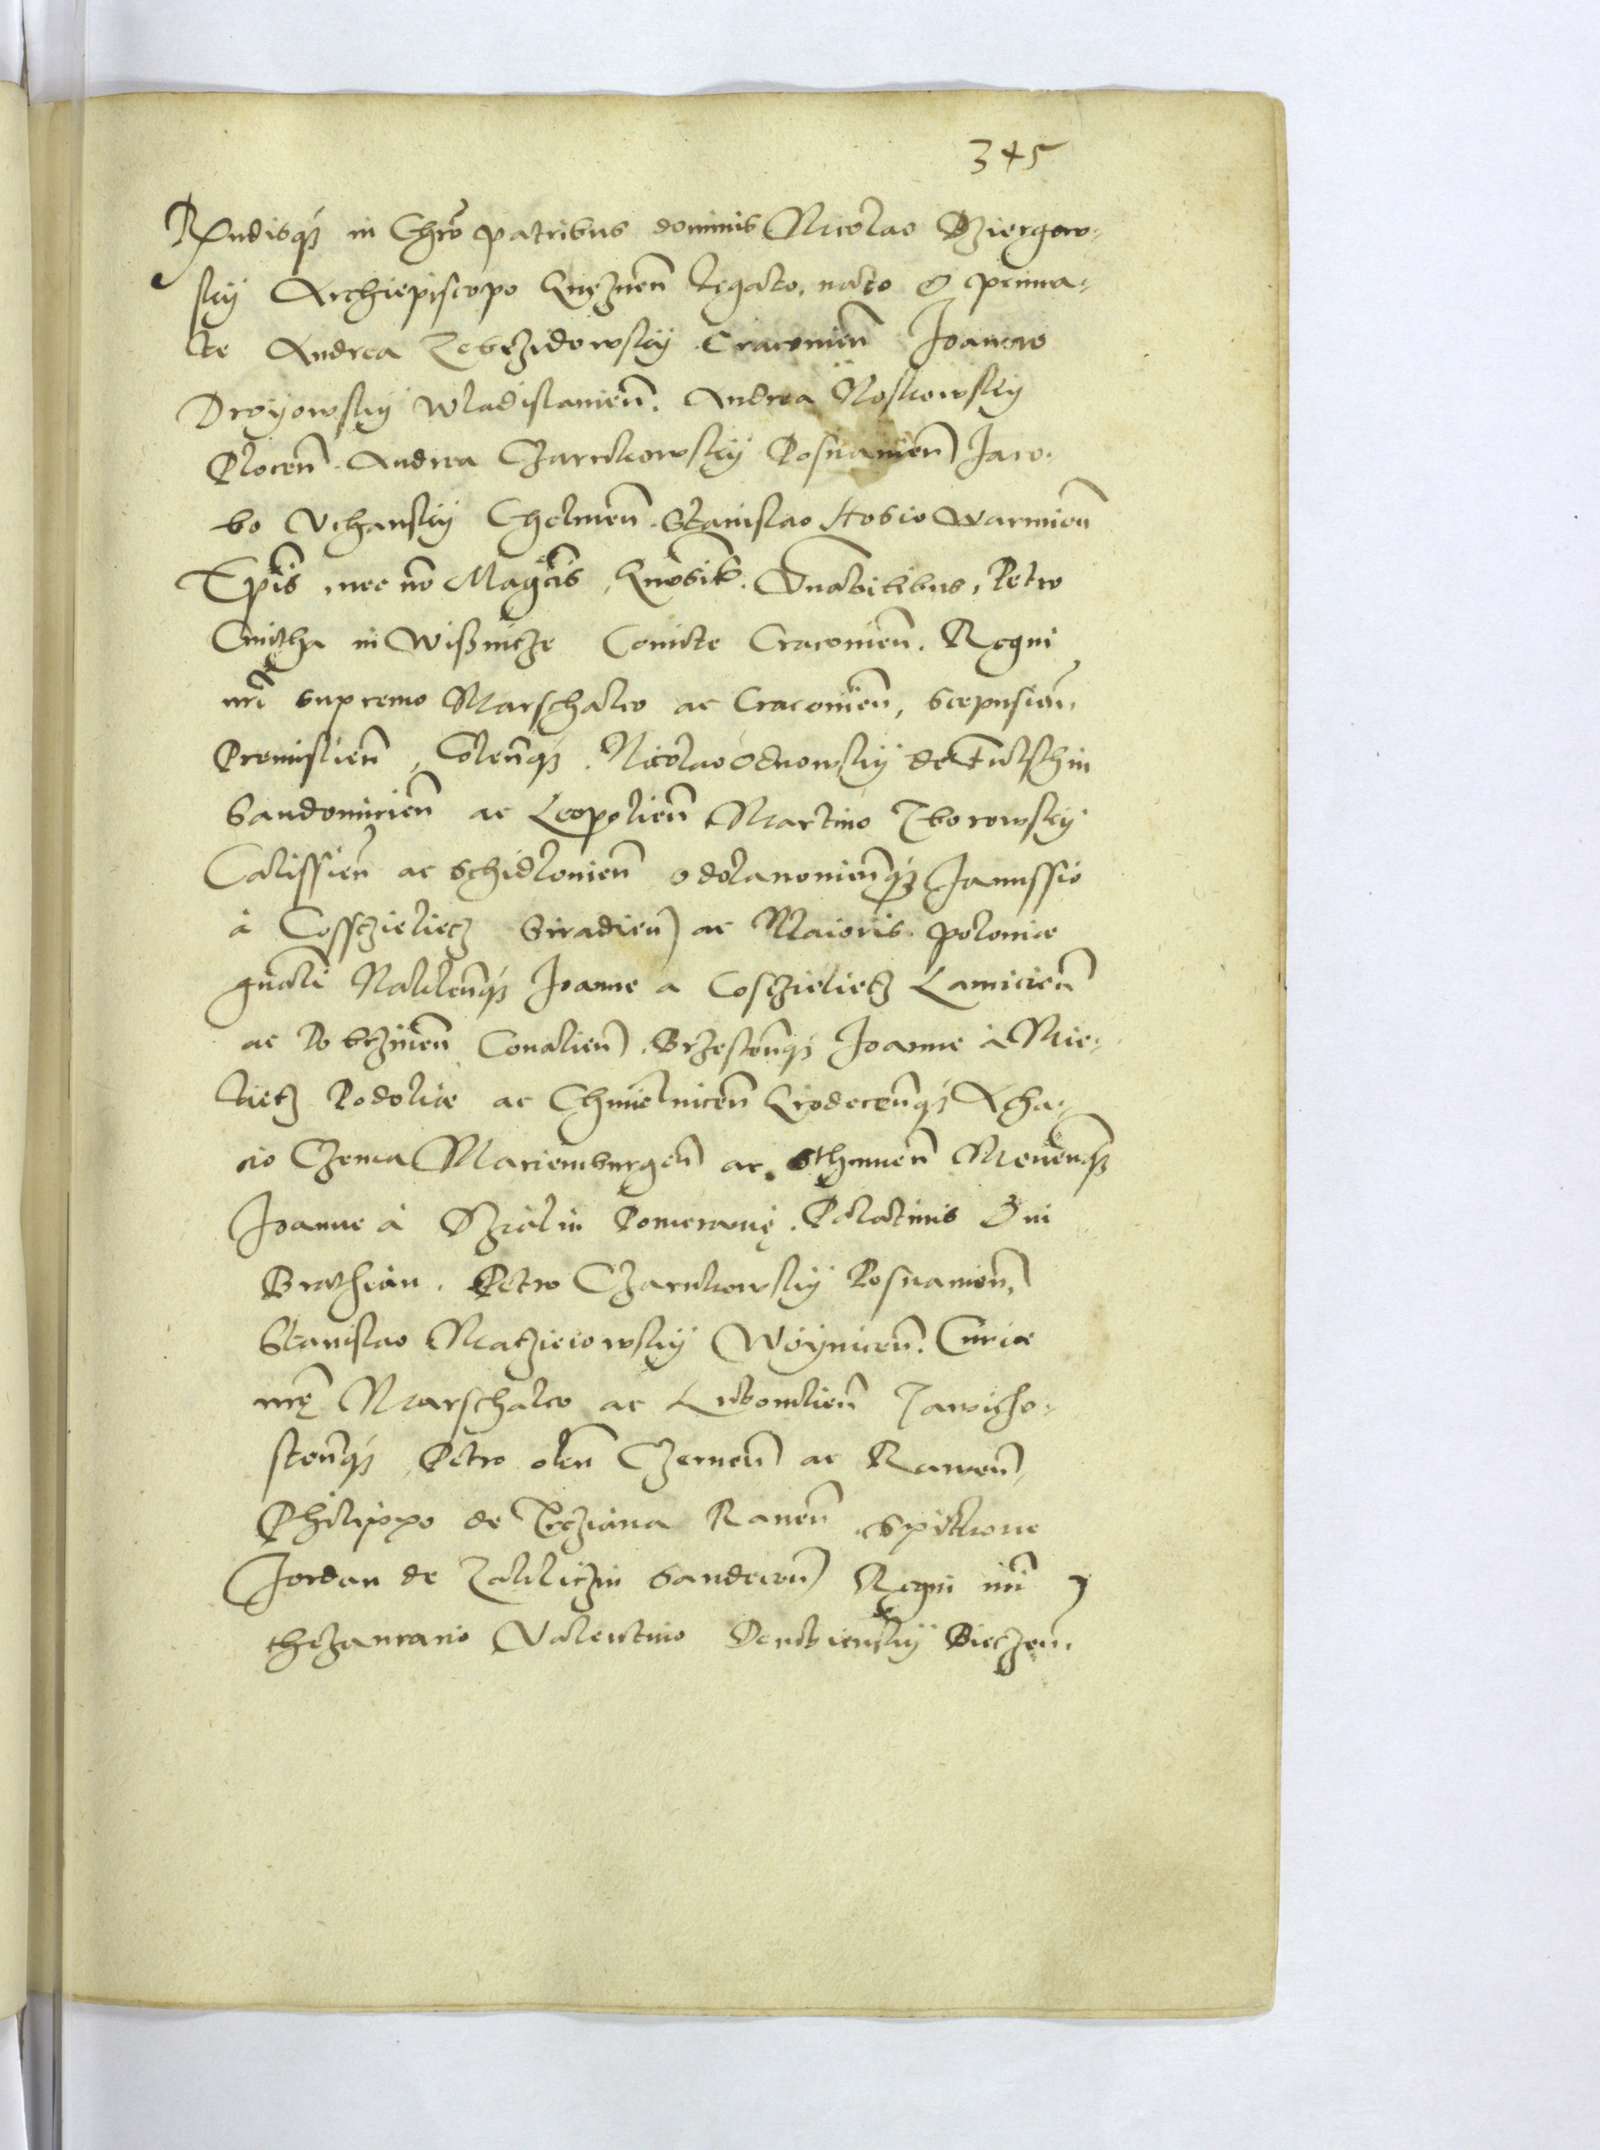 345
Rndisqz in Chro patribus dominis Nicolao Dziergow-
skÿ Archiepiscopo Gneznen̄ legato nato & prima-
te Andrea Zebrzidowskÿ Cracovien̄ Joanne
Droÿowskÿ Wladislavien̄. Andrea Noskowskÿ
Plocen̄. Andrea Czarnkowskÿ Posnanien̄ Jaco-
bo Vchanskÿ Chelmen̄. Stanislao Hosio Warmien̄
Ep̄is nec nō Mag̅cis, Gn̄osis. Petro
Cmitha in Wisznicze Comite Cracovien̄. Regni
nr̄i supremo Marschalco ac Cracovien̄, Scepusien̄
Premislien̄, Colen̄qz. Nicolao Odnowskÿ de Fulschin
Sandomirien̄ ac Leopolien̄ Martino Zborowskÿ
Calissien̄ ac Schidlovien̄ Odolanovien̄qz Janussio
à Cossczieliecz Siradien̄ ac Maioris Polonie
gn̄ali Naklen̄qz Joanne a Cosczieliecz Lanicien̄
ac Dobrzinen̄ Conalien̄. Brzesten̄qz Joanne à Mie-
lietz Podolie ac Chmielnicen̄ Grodecen̄qz Acha-
cio Czema Mariemburgen̄ ac Sthumen̄ Meven̄qz
Joanne à Dzialin Pomeranię. Palatinis & in
Brathian. Petro Czarnkowskÿ Posnanien̄,
Stanislao Matzieiowskÿ Woÿnicen̄. Curie
nr̄ę Marschalco ac Lubomlien̄ Zawicho-
sten̄qz, Petro olen̄ Czernen̄ ac Rawen̄,
Philippo de Raven̄ Spitkone
Jordan de Zakliczin Sandecen̄ Regni nr̄i
thezaurario Valentino Dembienskÿ Bieczen̄.